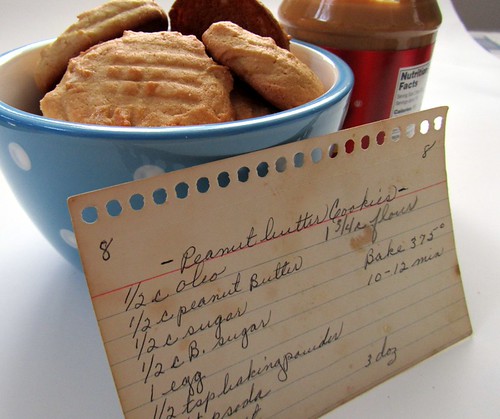 Nutrition
Facts
8
8
- Peanut butter Cookies -
1/2 c oleo
1 3/4 c flour
1/2 c peanut Butter
1/2 c sugar
Bake 375°
1/2 c B. sugar
10-12 min
1 egg
1/2 tsp baking powder
3 doz
soda